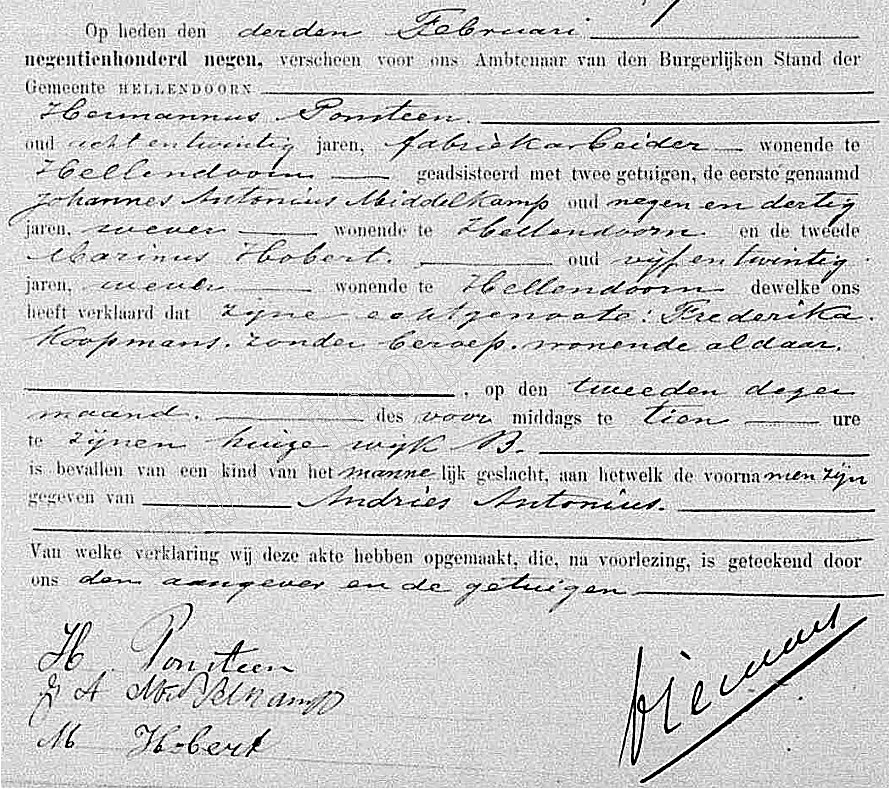 Op heden den derden Februari
negentienhonderd negen, verscheen voor ons Ambtenaar van den Burgerlijken Stand der
Gemeente HELLENDOORN
Hermannus Ponsteen.
oud acht en twintig jaren, fabriekarbeider wonende te
Hellendoorn geadsisteerd met twee getuigen, de eerste genaamd
Johannes Antonius Middelkamp oud negen en dertig
jaren, wever wonende te Hellendoorn en de tweede
Marinus Hobert. oud vijf en twintig
jaren, wever wonende te Hellendoorn dewelke ons
heeft verklaard dat zijne echtgenoote: Frederika
Koopmans. zonder beroep. wonende aldaar.
, op den tweeden dezer
maand. des voor middags te tien ure
te zijnen huize wijk B.
is bevallen van een kind van het mannelijk geslacht, aan hetwelk de voornamen zijn
gegeven van Andries Antonius.
Van welke verklaring wij deze akte hebben opgemaakt, die, na voorlezing, is geteekend door
ons den aangever en de getuigen
H Ponsteen
J A Middelkamp
M Hobert